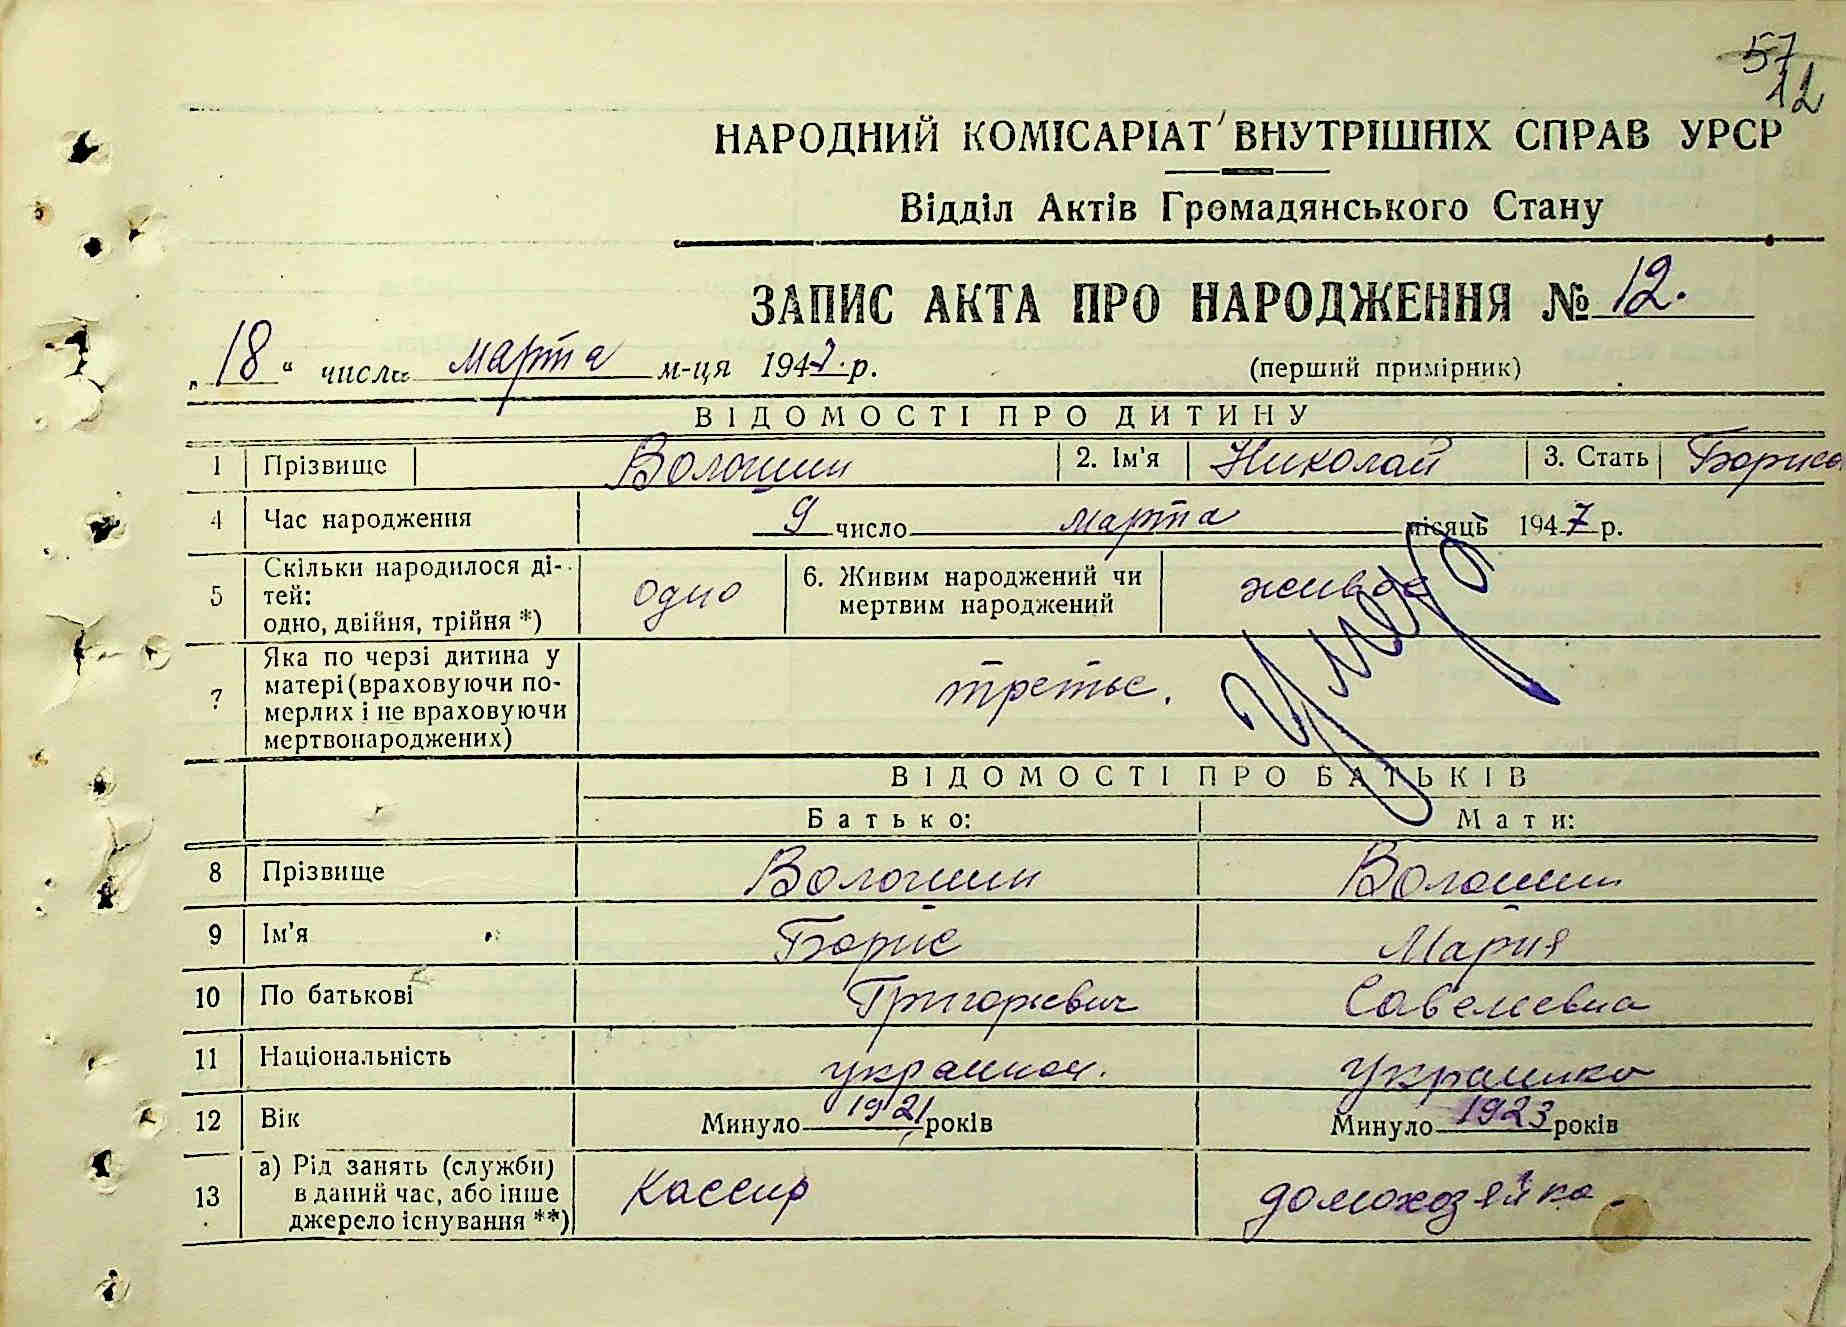 57
12
НАРОДНИЙ КОМІСАРІАТ ВНУТРІШНІХ СПРАВ УРСР
Відділ Актів Громадянського Стану
ЗАПИС АКТА ПРО НАРОДЖЕННЯ № 12.
„18“ числа марта м-ця 1947 р.
(перший примірник)
ВІДОМОСТІ ПРО ДИТИНУ
1 Прізвище Волошин 2. Ім'я Николай 3. Стать Борисо
4 Час народження 9 число марта місяць 1947 р.
5 Скільки народилося ді-
тей:
одно, двійня, трійня *) одно 6. Живим народжений чи
мертвим народжений живое
Умер
7 Яка по черзі дитина у
матері (враховуючи по-
мерлих і не враховуючи
мертвонароджених) третье.
ВІДОМОСТІ ПРО БАТЬКІВ
Батько: Мати:
8 Прізвище Волошин Волошин
9 Ім'я Борис Мария
10 По батькові Григорьевич Савельевна
11 Національність украинец. Украинка
12 Вік Минуло 1921 років Минуло 1923 років
13 а) Рід занять (служби)
в даний час, або інше
джерело існування **) Кассир домохозяйка